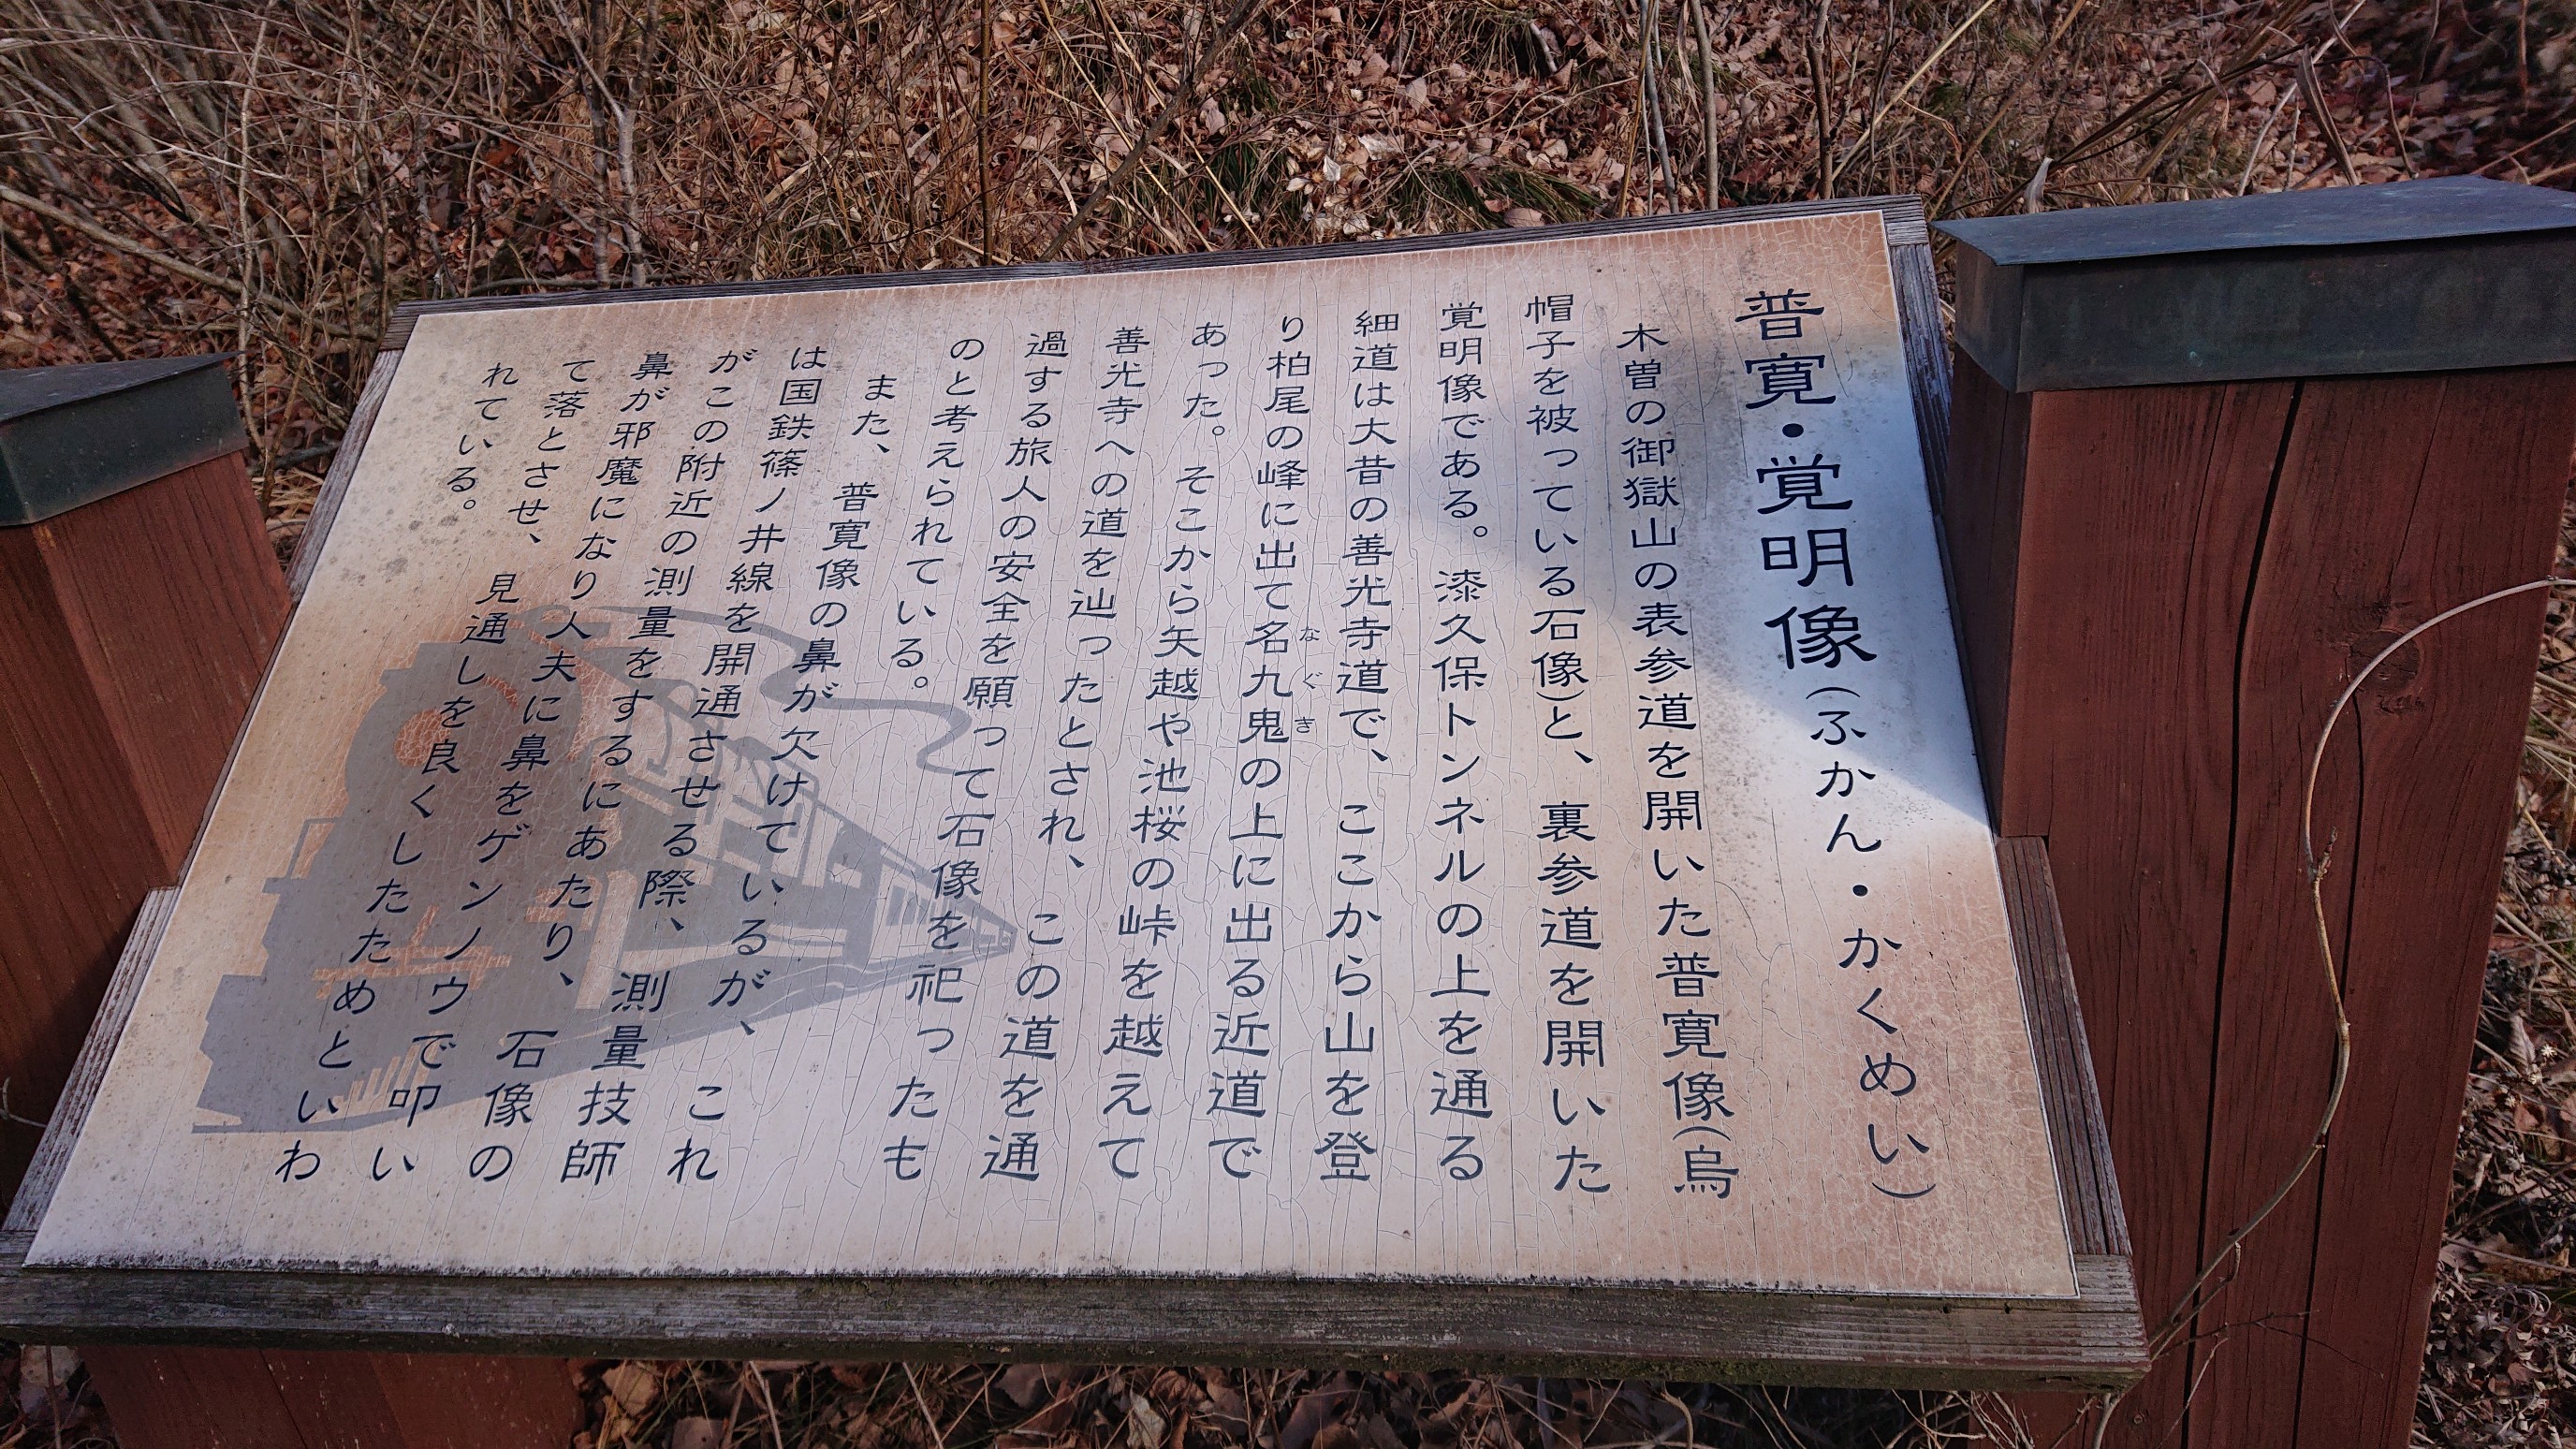 普寛・覚明像(ふかん・かくめい)
木曽の御獄山の表参道を開いた普寛像(烏
帽子を被っている石像)と、裏参道を開いた
覚明像である。漆久保トンネルの上を通る
細道は大昔の善光寺道で、ここから山を登
り柏尾の峰に出て名九鬼の上に出る近道で
なぐき
あった。そこから矢越や池桜の峠を越えて
善光寺への道を辿ったとされ、この道を通
過する旅人の安全を願って石像を祀ったも
のと考えられている。
また、普寛像の鼻が欠けているが、これ
は国鉄篠ノ井線を開通させる際、測量技師
がこの附近の測量をするにあたり、石像の
鼻が邪魔になり人夫に鼻をゲンノウで叩い
て落とさせ、見通しを良くしたためといわ
れている。